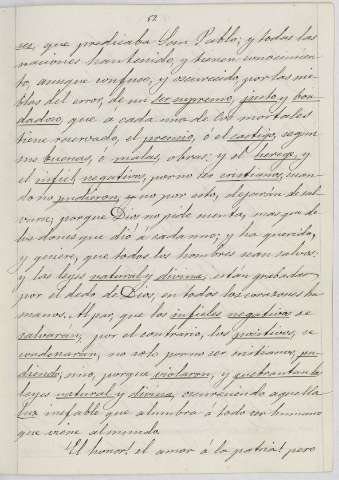 52
vez, que predicaba San Pablo; y todas las
naciones han tenido, y tienen conocimien-
to, aunque confuso, y oscurecido, por las nie-
blas del error, de un ser supremo, justo y bon-
dadoso, que á cada uno de los mortales
tiene reservado, el premio, ó el castigo, segun
sus buenas, ó malas, obras: y el herege, y
el infiel negativos, por no ser cristianos, cuan-
do no pudieron, no por esto, dejarán de sal-
varse; porque Dios no pide cuenta, mas que de
los dones que dió á cada uno; y ha querido,
y quiere, que todos los hombres sean salvos:
y las leyes natural y divina, estan grabadas
por el dedo de Dios, en todos los corazones hu-
manos. Al par, que los infieles negativos se
salvarán; por el contrario, los positivos, se
condenarán, no solo por no ser cristianos, pu-
diendo, sino, porque violaron, y quebrantan las
leyes natural y divina, oscureciendo aquella
luz inefable que alumbra á todo ser humano
que viene al mundo.
El honor! el amor á la patria! pero